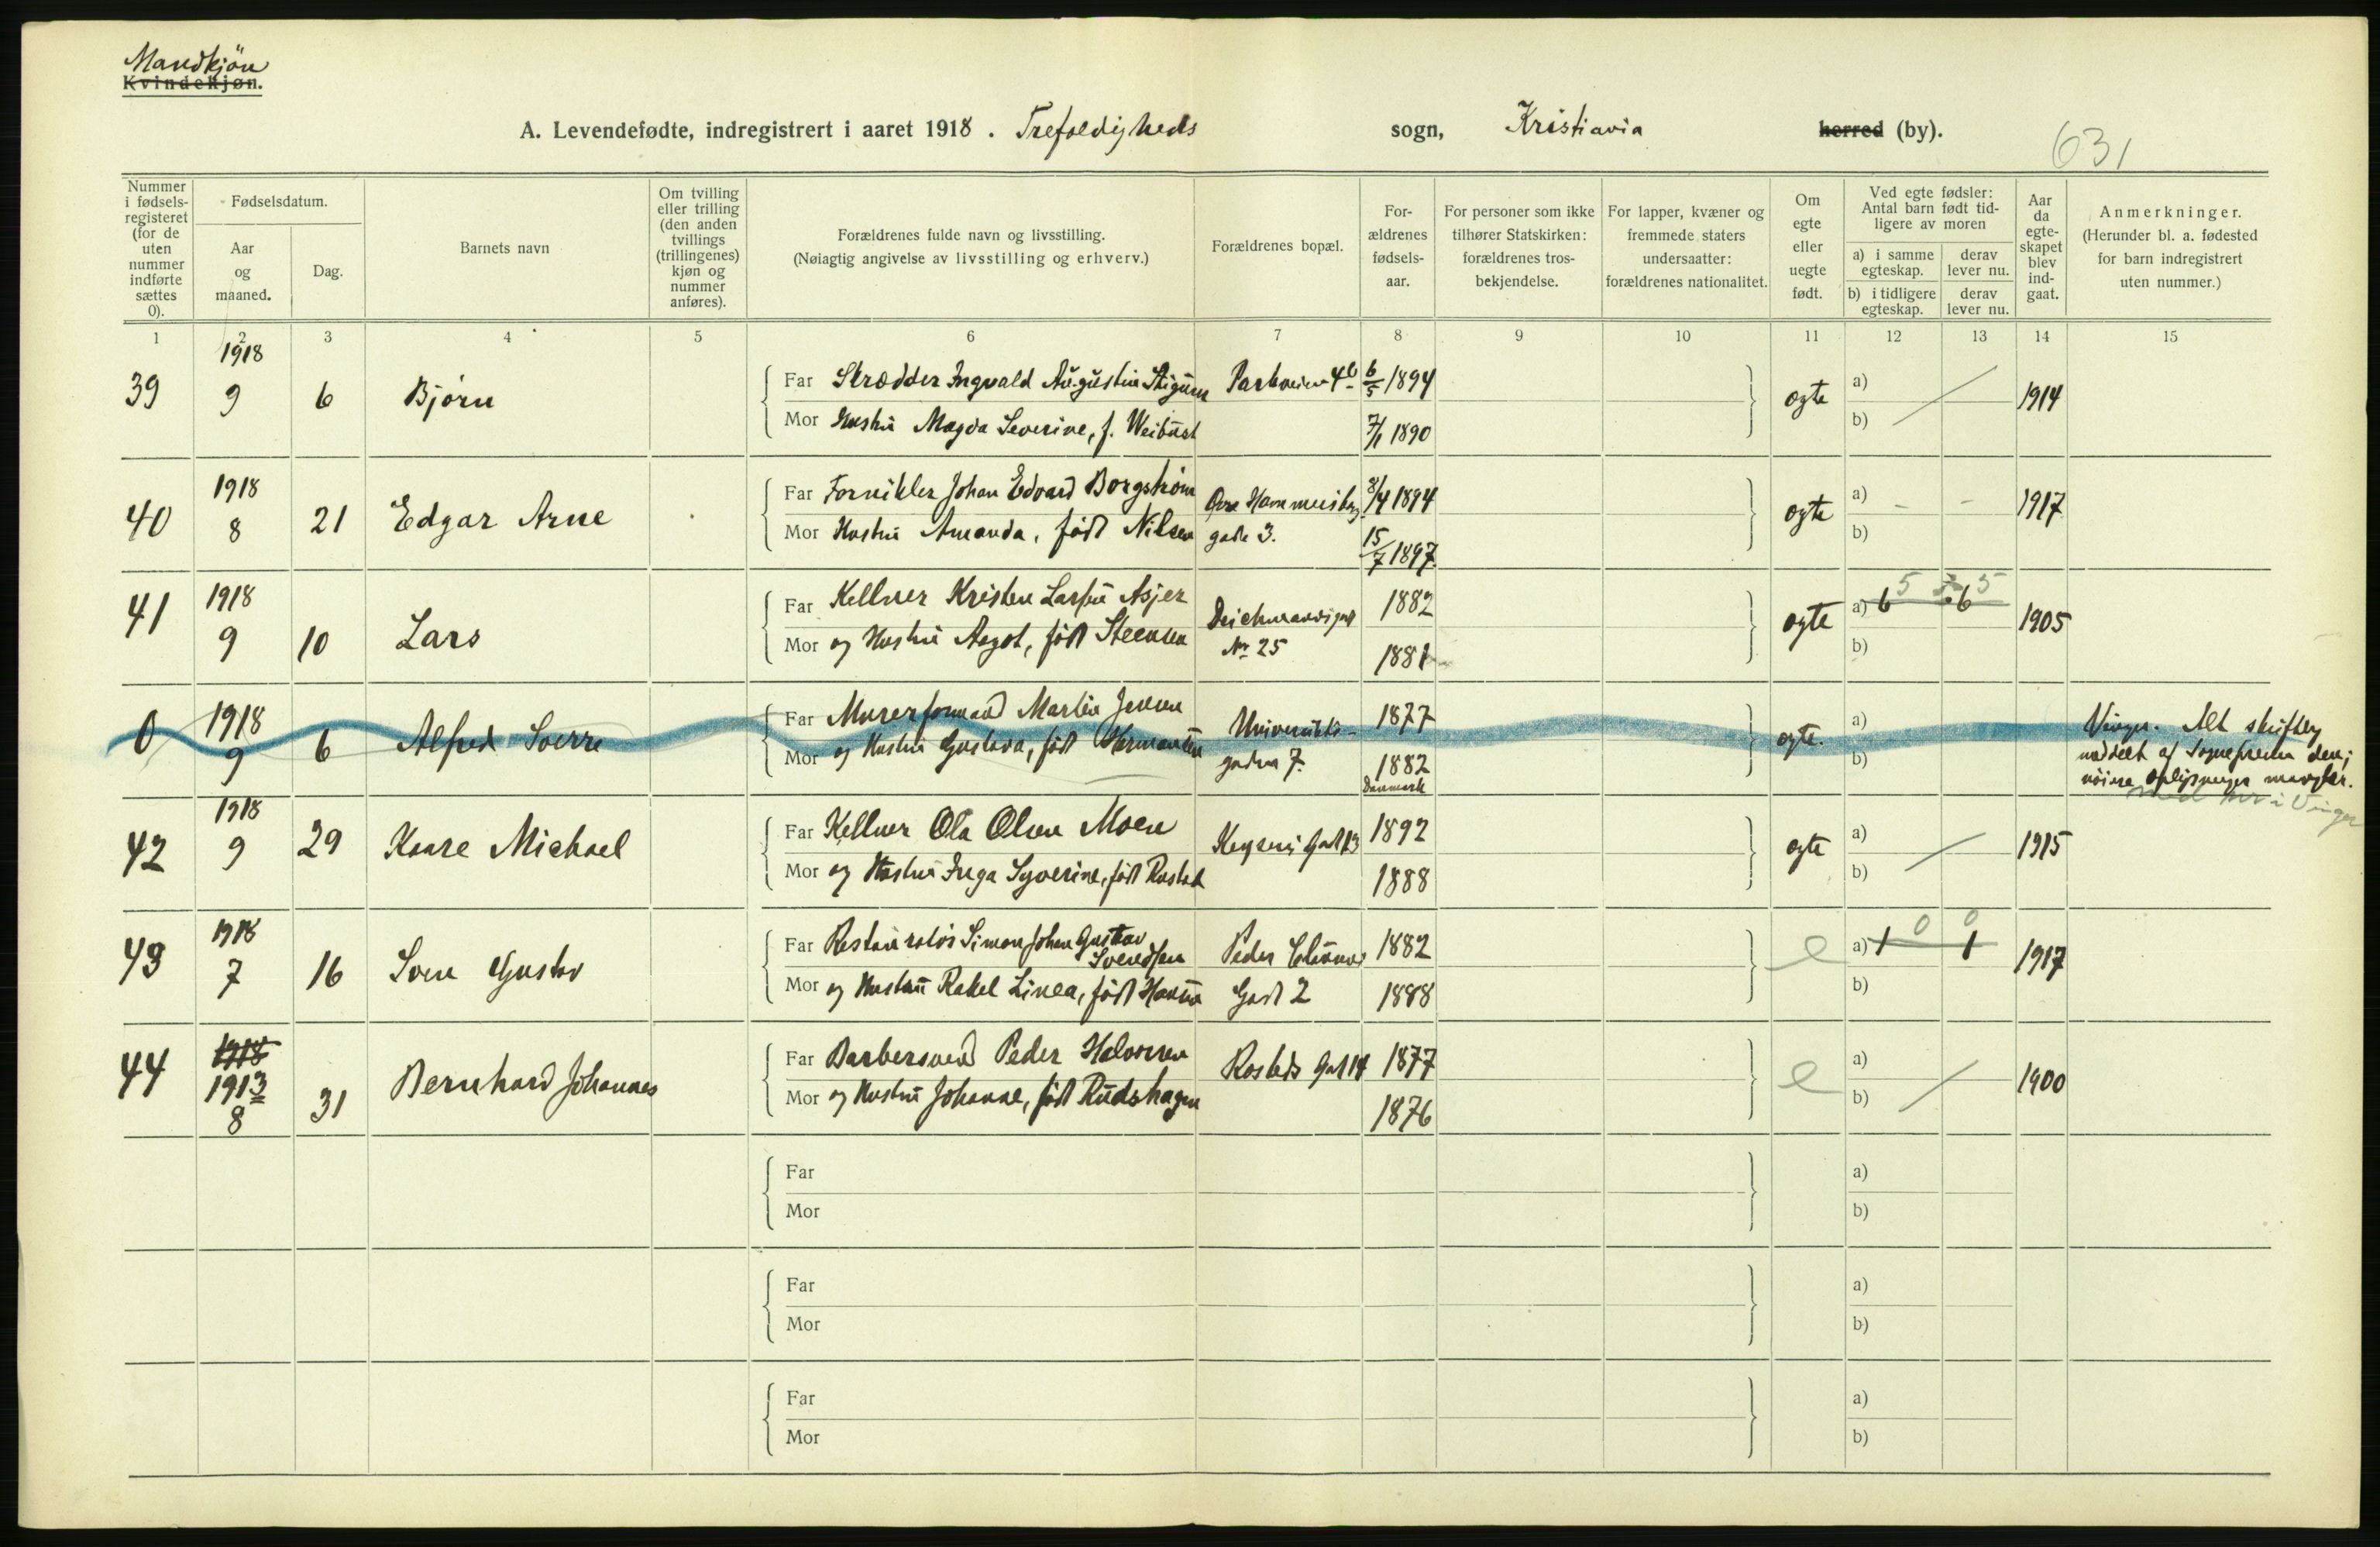 Mandkjön
Kvindekjøn.
A. Levendefødte, indregistrert i aaret 1918. Trefoldigheds sogn, Kristiania herred (by).
631
Nummer i fødselsregisteret (for de uten nummer indførte sættes 0).
Fødselsdatum.
Aar og maaned.
Dag.
Barnets navn
Om tvilling eller trilling (den anden tvillings (trillingenes) kjøn og nummer anføres).
Forældrenes fulde navn og livsstilling.
(Nøiagtig angivelse av livsstilling og erhverv.)
Forældrenes bopæl.
For-
ældrenes
fødsels-
aar.
For personer som ikke
tilhører Statskirken:
forældrenes tros-
bekjendelse.
For lapper, kvæner og
fremmede staters
undersaatter:
forældrenes nationalitet.
Om
egte
eller
uegte
født.
Ved egte fødsler:
Antal barn født tid-
ligere av moren
a) i samme egteskap.
derav lever nu.
b) i tidligere egteskap.
derav lever nu.
Aar
da
egte-
skapet
blev
ind-
gaat.
Anmerkninger.
(Herunder bl. a. fødested
for barn indregistrert
uten nummer.)
1 2 3 4 5 6 7 8 9 10 11 12 13 14 15
39 1918 9 6 Bjørn
Far Skrædder Ingvald Augustin Stigum Parkveien 4b 6/5 1894
Mor Hustru Magda Severine, f. Weibust 7/1 1890
egte a) b) 1914
40 1918 8 21 Edgar Arne
Far Fornikler Johan Edvard Borgstrøm Øvre Hammersborg 8/4 1894
Mor Hustru Amanda, født Nilsen gade 3. 15/7 1897
egte a) - - b) 1917
41 1918 9 10 Lars
Far Kellner Kristen Larsen Asjer Deichmansgad 1882
Mor og Hustru Aagot, født Steensen Nr 25 1881
egte a) 6 5 6 5 b) 1905
0 1918 9 6 Alfred Sverre
Far Murerformand Martin Jensen Universitets- 1877
Mor og Hustru Gustava, født Hermansen gaden 7. 1882
Danmark
egte. a) b)
Vinger. Alt skriftlig
meddelt af Sognepresten der;
nöiere oplysninger mangler.
med her i Vinger
42 1918 9 29 Kaare Michael
Far Kellner Ola Olsen Moen Keysers Gad 13 1892
Mor og Hustru Inga Syverine, født Rustad 1888
egte a) b) 1915
43 1918 7 16 Sven Gustav
Far Restauratör Simon Johan Gustav Svendsen Peder Claussens 1882
Mor og Hustru Rakel Linea, født Gad 2 1888
e a) 1 0 1 0 b) 1917
44 1918 1913 8 31 Bernhard Johannes
Far Barbersvend Peder Halvorsen Rosteds Gad 14 1877
Mor og Hustru Johanne, født Rudshagen 1876
e a) b) 1900
Far a)
Mor b)
Far a)
Mor b)
Far a)
Mor b)